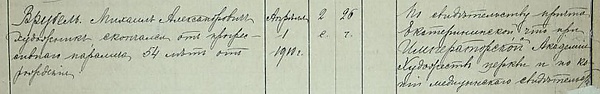 Врубель Михаилъ Александровичъ
художникъ скончался отъ прогрес-
сивнаго паралича 54 лѣтъ отъ
рожденія
Апрѣля
1
1910 г.
2 26
с. г.
По свидѣтельству причта
Екатерининской что при
Императорской Академіи
Художествъ церкви и по ко-
піи медицинскаго свидѣтельства